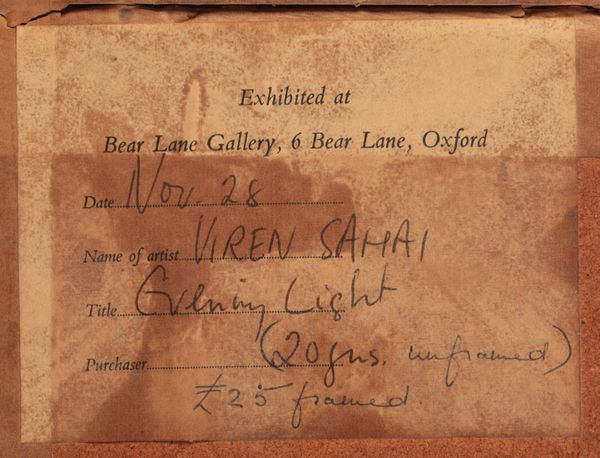 Exhibited at
Bear Lane Gallery, 6 Bear Lane, Oxford
Date Nov. 28
Name of artist VIREN SAHAI
Title Evening Light
Purchaser (20 gns. unframed)
£25 framed.